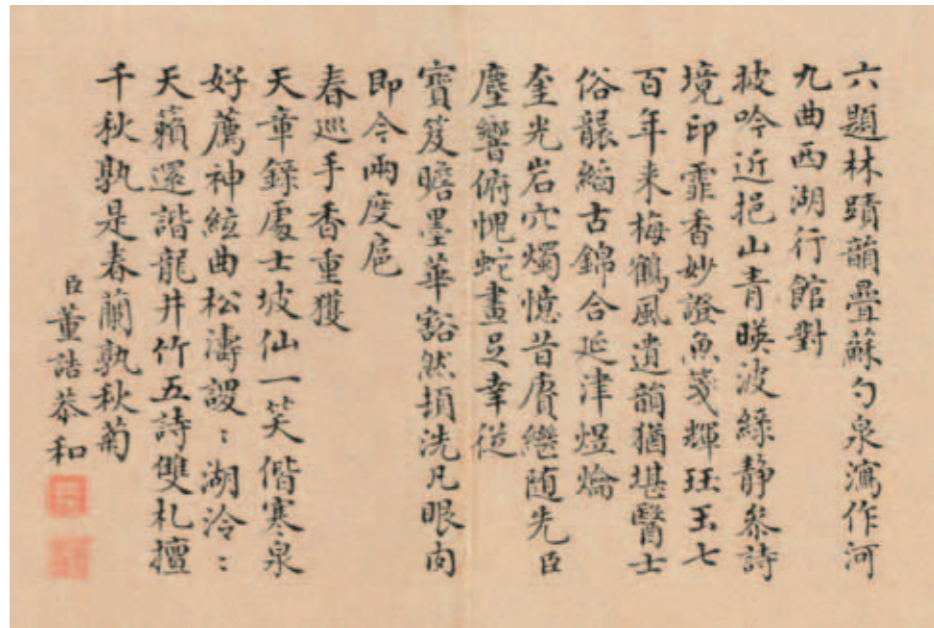 六題林蹟韻疊蘇勺泉瀉作河
九曲西湖行館對
披吟近挹山青暎波綠靜參詩
境印霏香妙證魚箋輝珏玉七
百年来梅鶴風遺韻猶堪醫士
俗韔縚古錦合延津煜爚
奎光岩穴燭憶昔賡繼随先臣
塵響俯愧蛇畫足幸從
寶笈瞻墨華豁然頓洗凡眼肉
即今兩度扈
春巡手香重獲
天章錄處士坡仙一笑偕寒泉
好薦神絃曲松濤謖:湖泠:
天籟還諧龍井竹五詩雙札擅
千秋孰是春蘭孰秋菊
臣董誥恭和